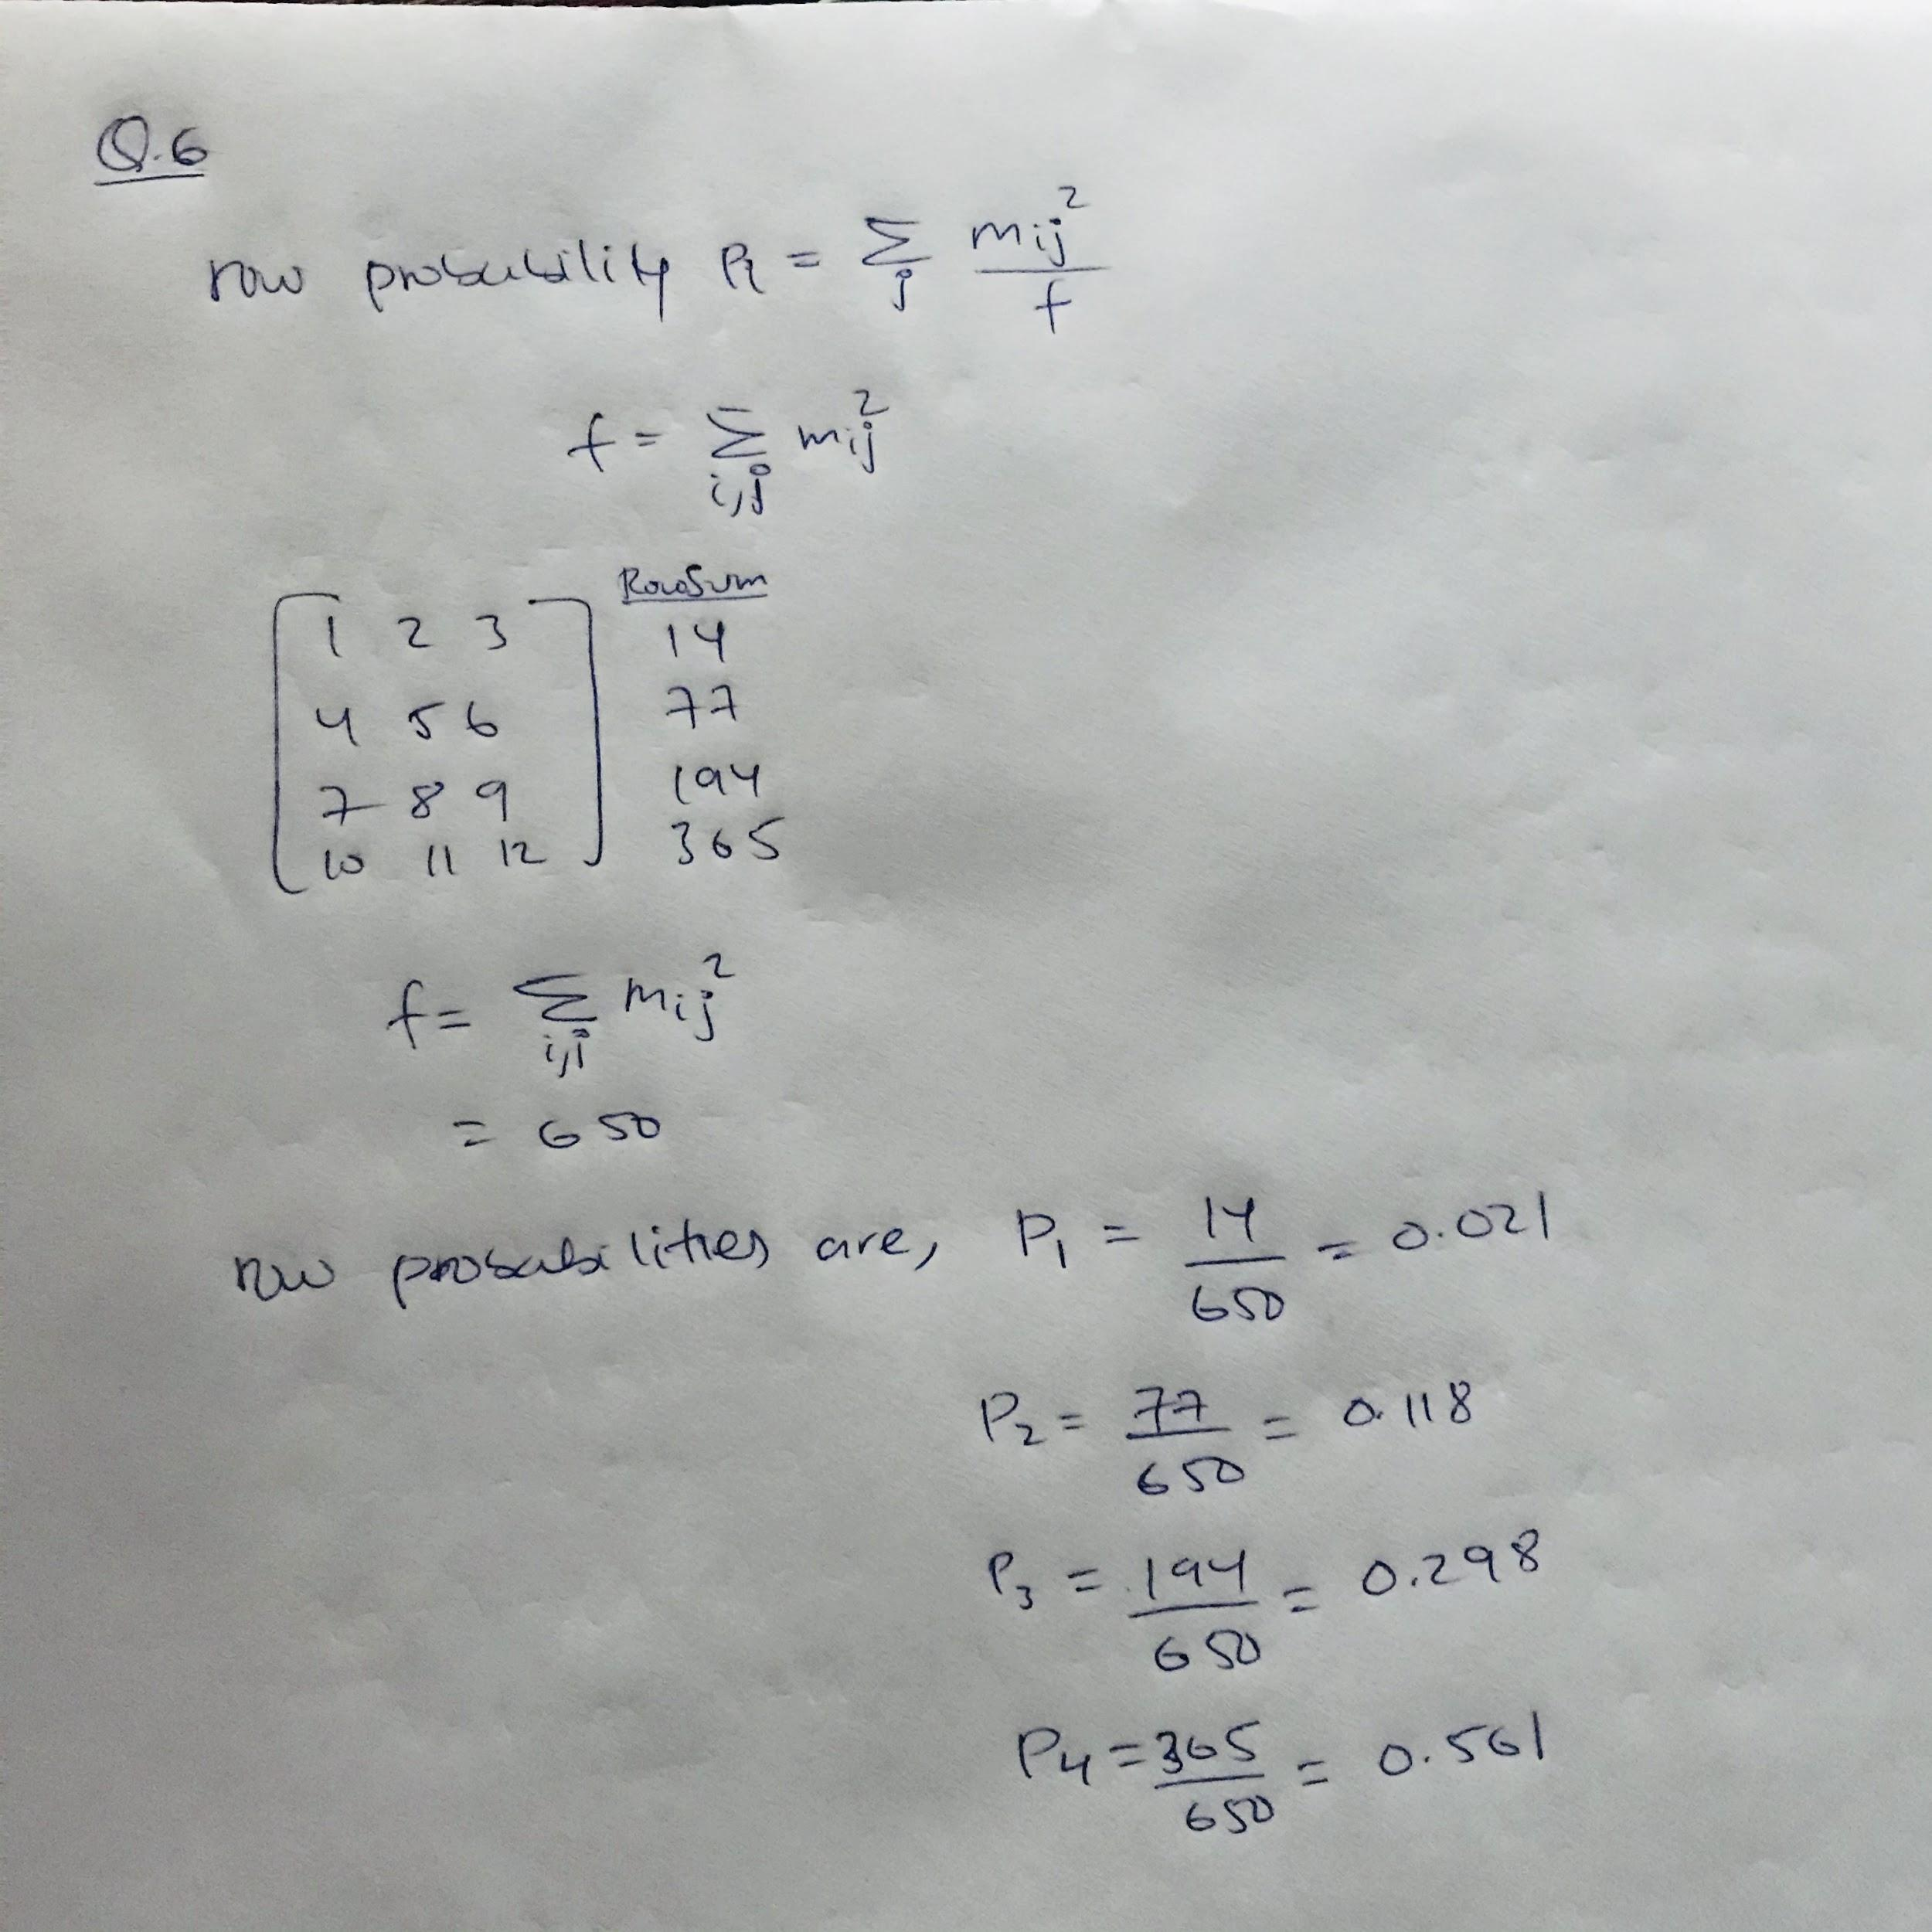 Q.6
row probability Pi = Σj mij² / f
f = Σi,j mij²
RowSum
1 2 3 14
4 5 6 77
7 8 9 194
10 11 12 365
f = Σi,j mij²
= 650
row probabilities are, P1 = 14/650 = 0.021
P2 = 77/650 = 0.118
P3 = 194/650 = 0.298
P4 = 365/650 = 0.561